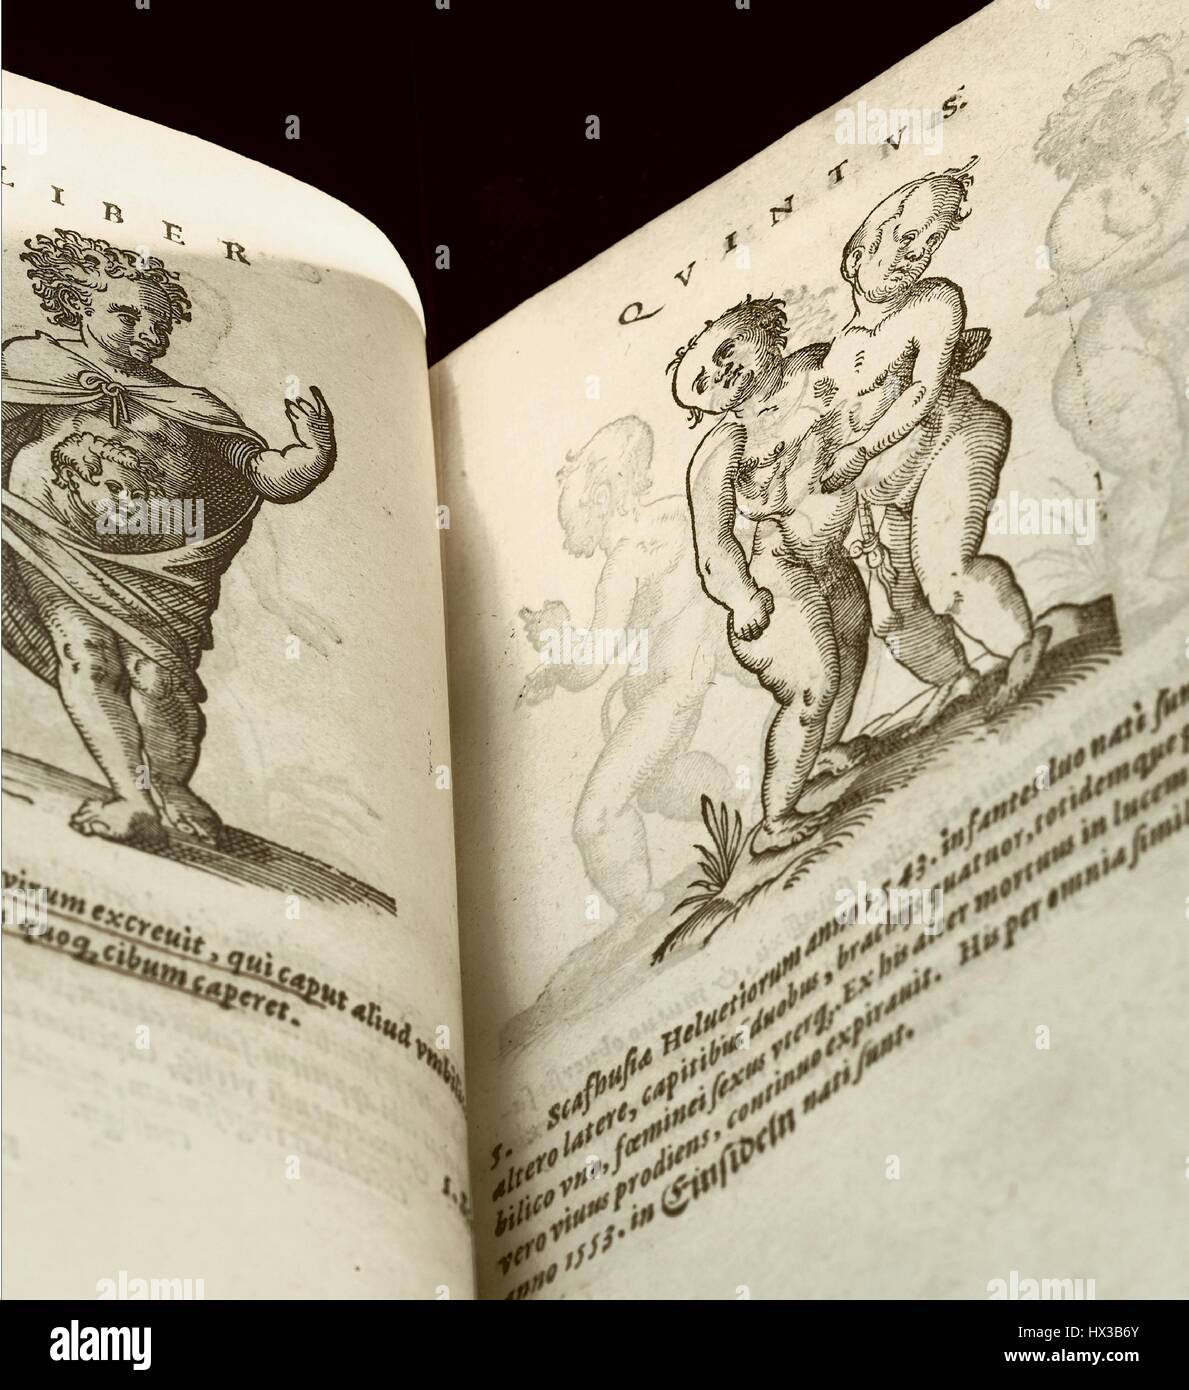 LIBER
virum excreuit, qui caput aliud vmbili
quoq, cibum caperet.
QVINTVS.
5. Scafhusiæ Heluetiorum anno 1543. infantes duo nati sun
altero latere, capitibus duobus, brachijs quatuor, totidemque
bilico vno, fœminei sexus vterq;. Ex his alter mortuus in lucem
vero viuus prodiens, continuo expirauit. His per omnia simil
anno 1553. in Einsideln nati sunt.
alamy
Image ID: HX3B6Y
www.alamy.com